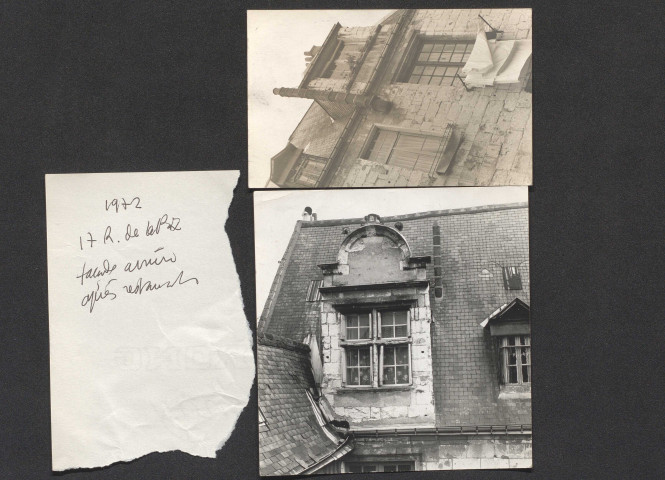 1972
17 R. de la Paix
façade arrière
après restauration